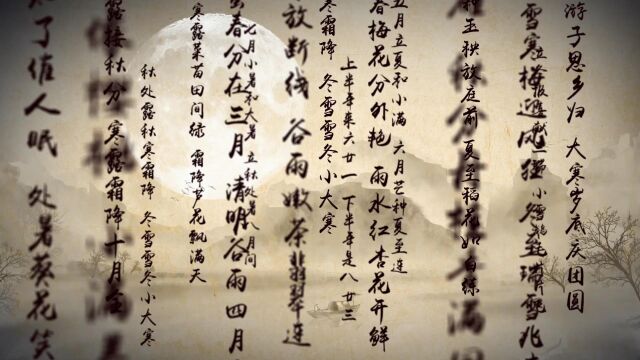 游子思乡归 大寒岁底庆团圆
雪寒梅迎风狂
瑞雪兆丰
玉秧放庭前 夏至稻花如白练
五月立夏和小满 六月芒种夏至连
春梅花分外艳 雨水红杏花开鲜
上半年来六廿一 下半年是八廿三
寒霜降 冬雪雪冬小大寒
放断线 谷雨嫩茶翡翠连
七月小暑和大暑 立秋处暑八月间
春分在三月 清明谷雨四月
寒露菜苗田间绿 霜降芦花飘满天
秋处露秋寒霜降 冬雪雪冬小大寒
露接秋分 寒露霜降十月全
了佳人眠 处暑葵花笑